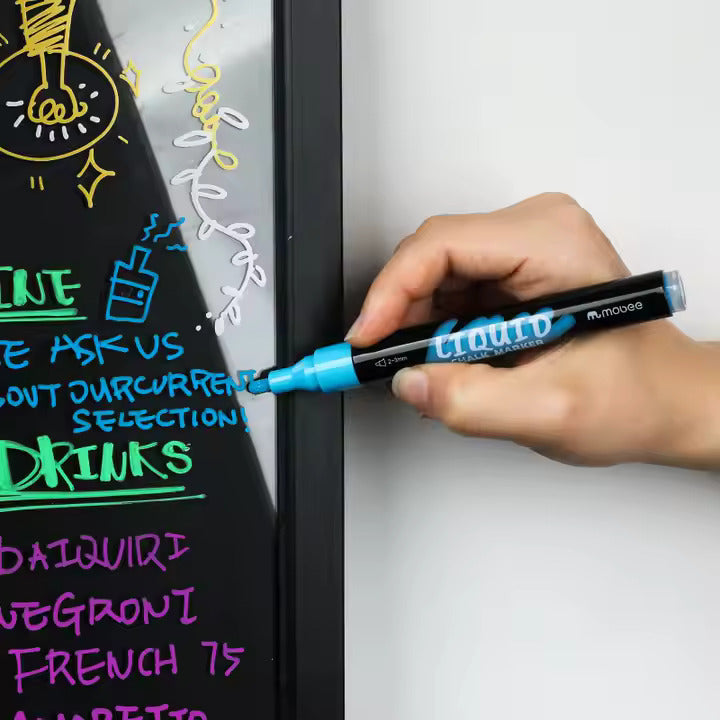 INE
E ASK US
BOUT OUR CURRENT
SELECTION!
DRINKS
DAIQUIRI
NEGRONI
FRENCH 75
AMARETTO
LIQUID
CHALK MARKER
2-3mm
mobee